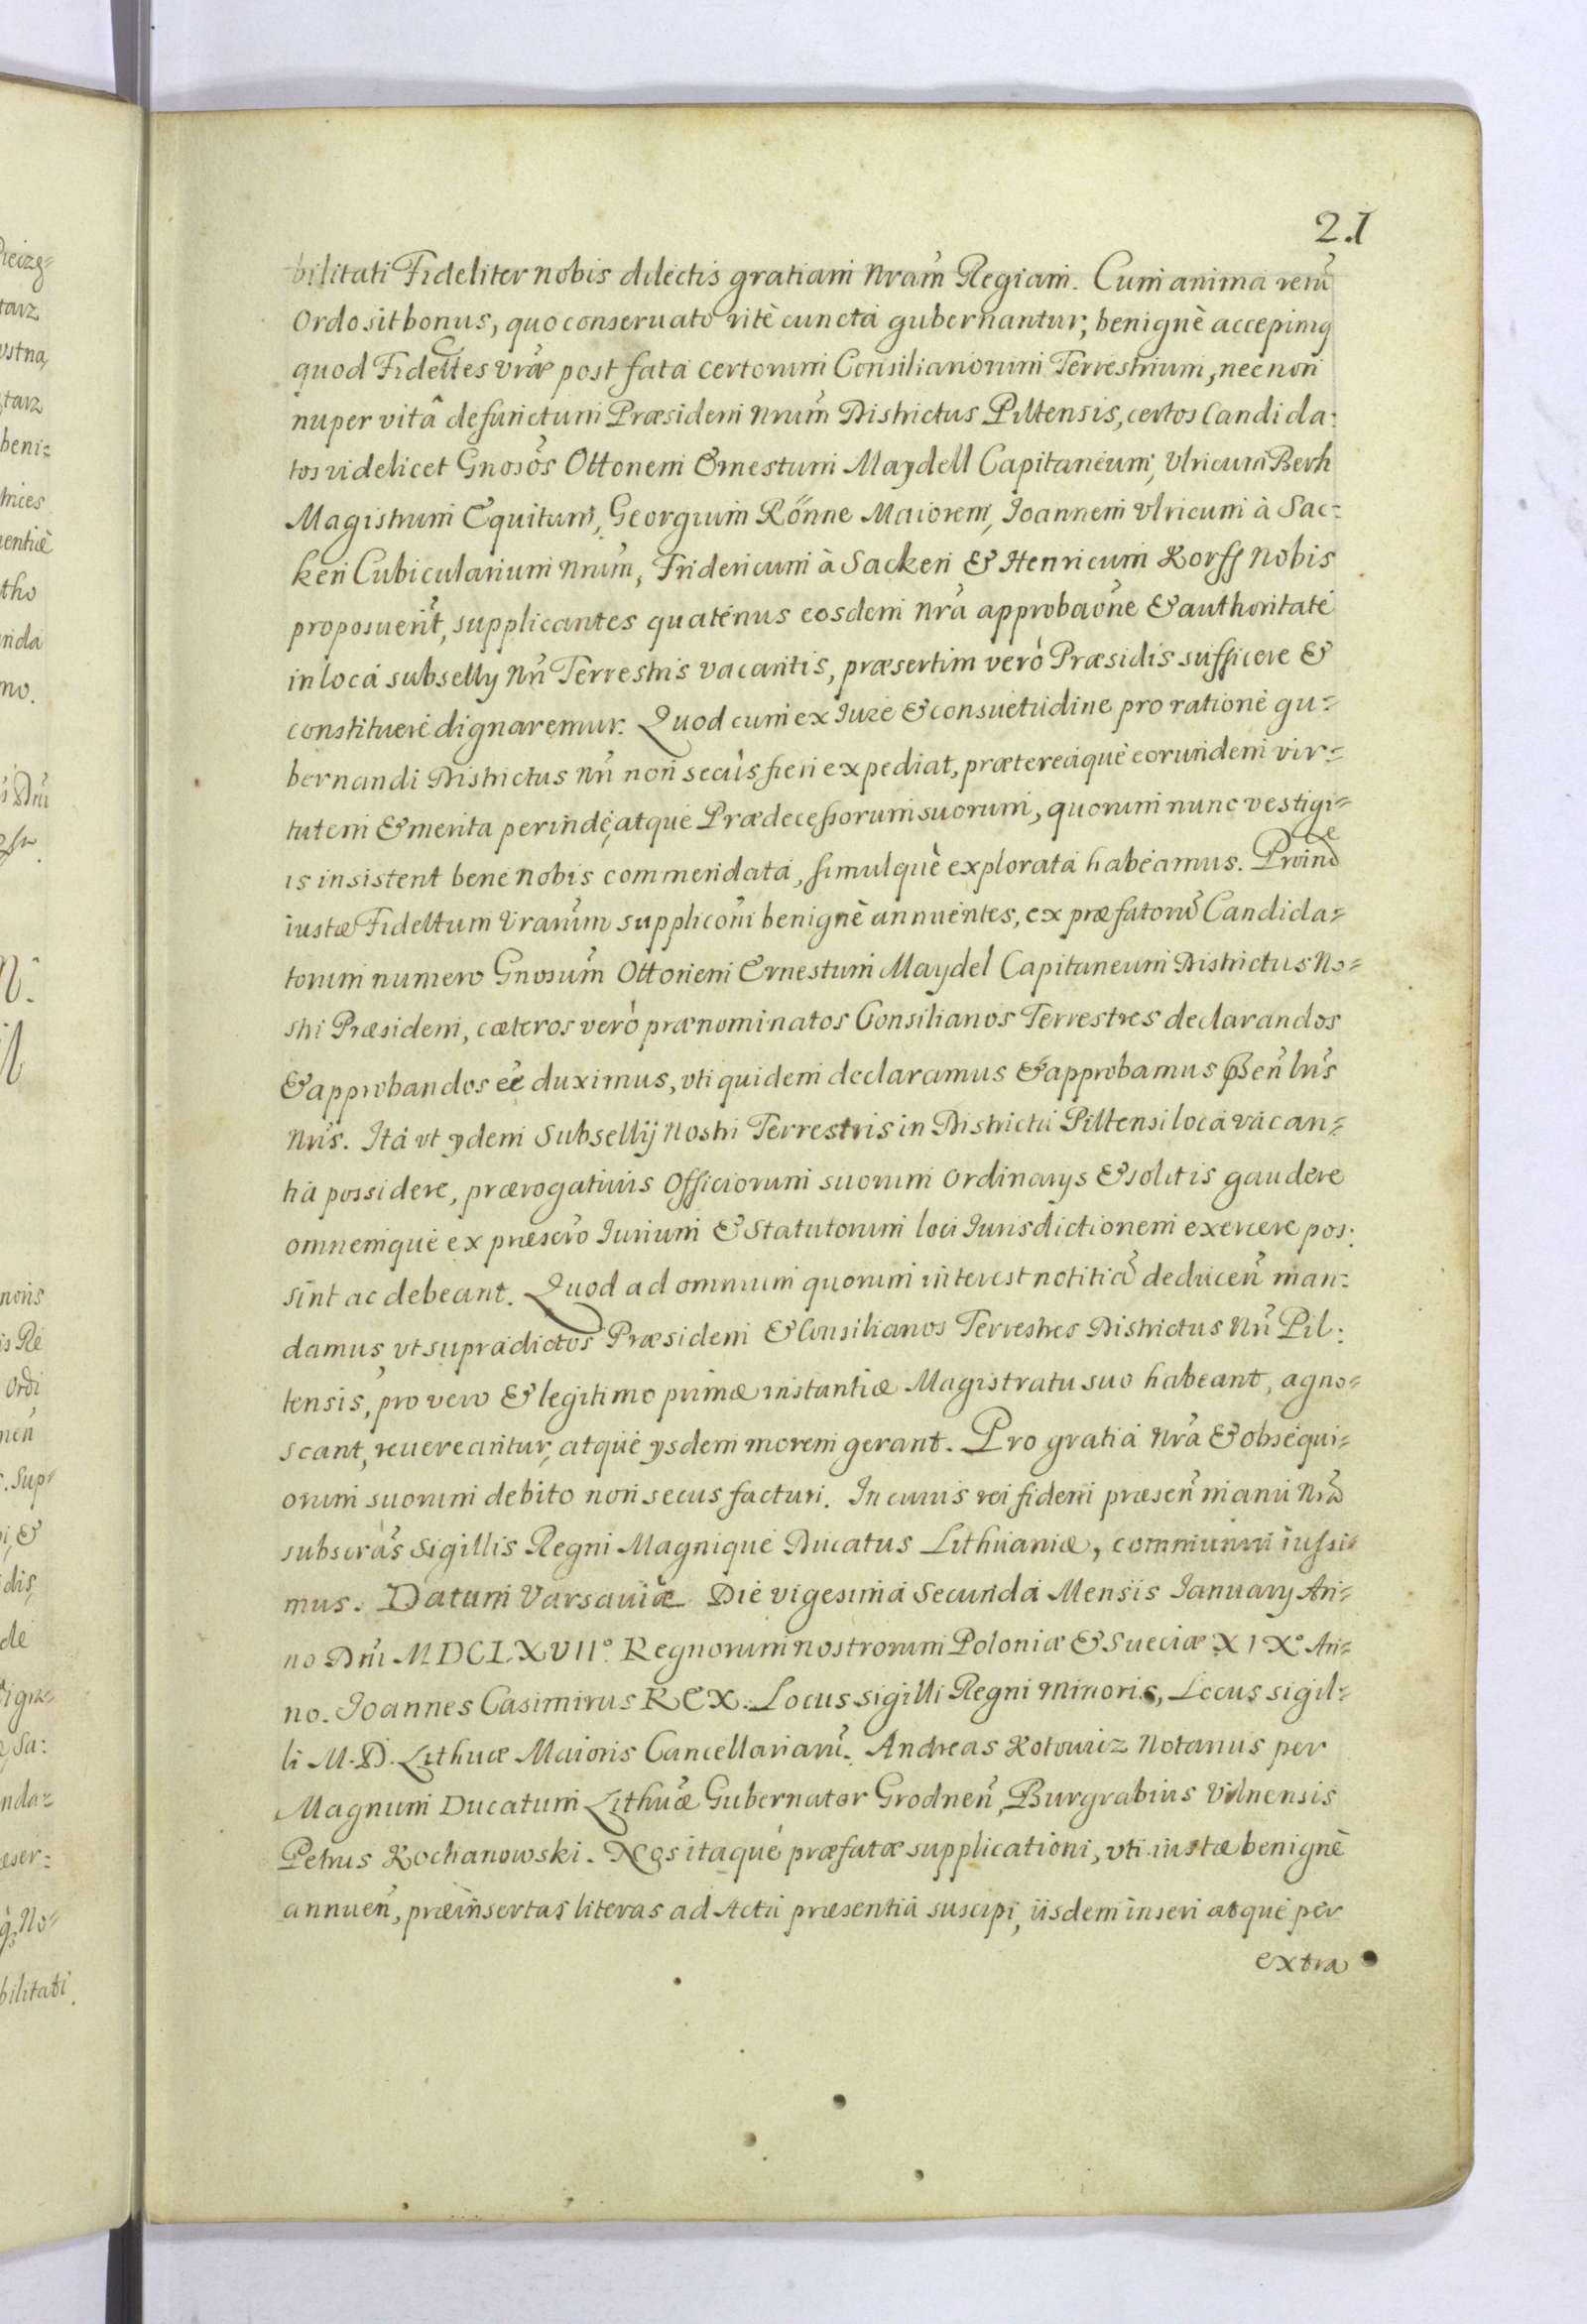 21
bilitati Fideliter nobis dilectis gratiam nram Regiam. Cum anima reru
Ordo sit bonus, quo conseruato ritè cuncta gubernantur, benignè accepimq
quod Fidelttes vrae post fata certorum Consiliariorum Terrestrium, nec non
nuper vitâ defunctum Præsidem nrum Districtus Piltensis, certos Candida:
tos videlicet Gnosos Ottonem Ernestum Maydell Capitaneum, Vlricum Berh
Magistrum Equitum, Georgium Rönne Maiorem, Joannem Vlricum à Sac:
ken Cubicularium nrum, Fridericum à Sacken & Henricum Korff nobis
proposuerit, supplicantes quatenus eosdem nra approbaone & authoritate
in loca subselly nri Terrestris vacantis, præsertim verò Præsidis sufficere &
constituere dignaremur. Quod cum ex Iure & consuetudine pro ratione gu=
bernandi Districtus nri non secùs fieri expediat, prætereaque eorundem vir=
tutem & merita perinde, atque Prædecessorum suorum, quorum nunc vestigi=
is insistent bene nobis commendata, simulquè explorata habeamus. Proinde
iustæ Fidelttum Vrarum suppliconi benignè annuentes, ex præfatoru Candida=
torum numero Gnosum Ottonem Ernestum Maydel Capitaneum Districtus No=
stri Præsidem, cæteros verò prænominatos Consiliarios Terrestres declarandos
& approbandos ee duximus, vti quidem declaramus & approbamus psen lris
nris. Ita vt ydem Subsellij Nostri Terrestris in Districtu Piltensi loca vacan=
tia possidere, prærogatiuis Officiorum suorum Ordinarys & solitis gaudere
omnemque ex præscro Iurium & Statutorum loci Iurisdictionem exercere pos:
sint ac debeant. Quod ad omnium quorum interest notitia deducen man=
damus vt supradictos Præsidem & Consiliarios Terrestres Districtus Nri Pil:
tensis, pro vero & legitimo primæ instantiæ Magistratu suo habeant, agno=
scant, reuereantur, atque ysdem morem gerant. Pro gratia nra & obsequi=
orum suorum debito non secus facturi. In cuius rei fidem præsen manu nra
subscras Sigillis Regni Magnique Ducatus Lithuaniæ, communiri iussi=
mus. Datum Varsauiæ Die vigesima Secunda Mensis January An=
no Dni MDCLXVII° Regnorum nostrorum Poloniæ & Sueciæ XIX° An=
no. Joannes Casimirus REX. Locus sigilli Regni minoris, Locus sigil=
li M.D. Lithuæ Maioris Cancellariaru. Andreas Kotowicz Notarius per
Magnum Ducatum Lithuæ Gubernator Grodnen, Burgrabius Vilnensis
Petrus Kochanowski. Nos itaque præfatæ supplicationi, vti iustæ benignè
annuen, præinsertas literas ad Acta præsentia suscipi, iisdem inseri atque per
extra